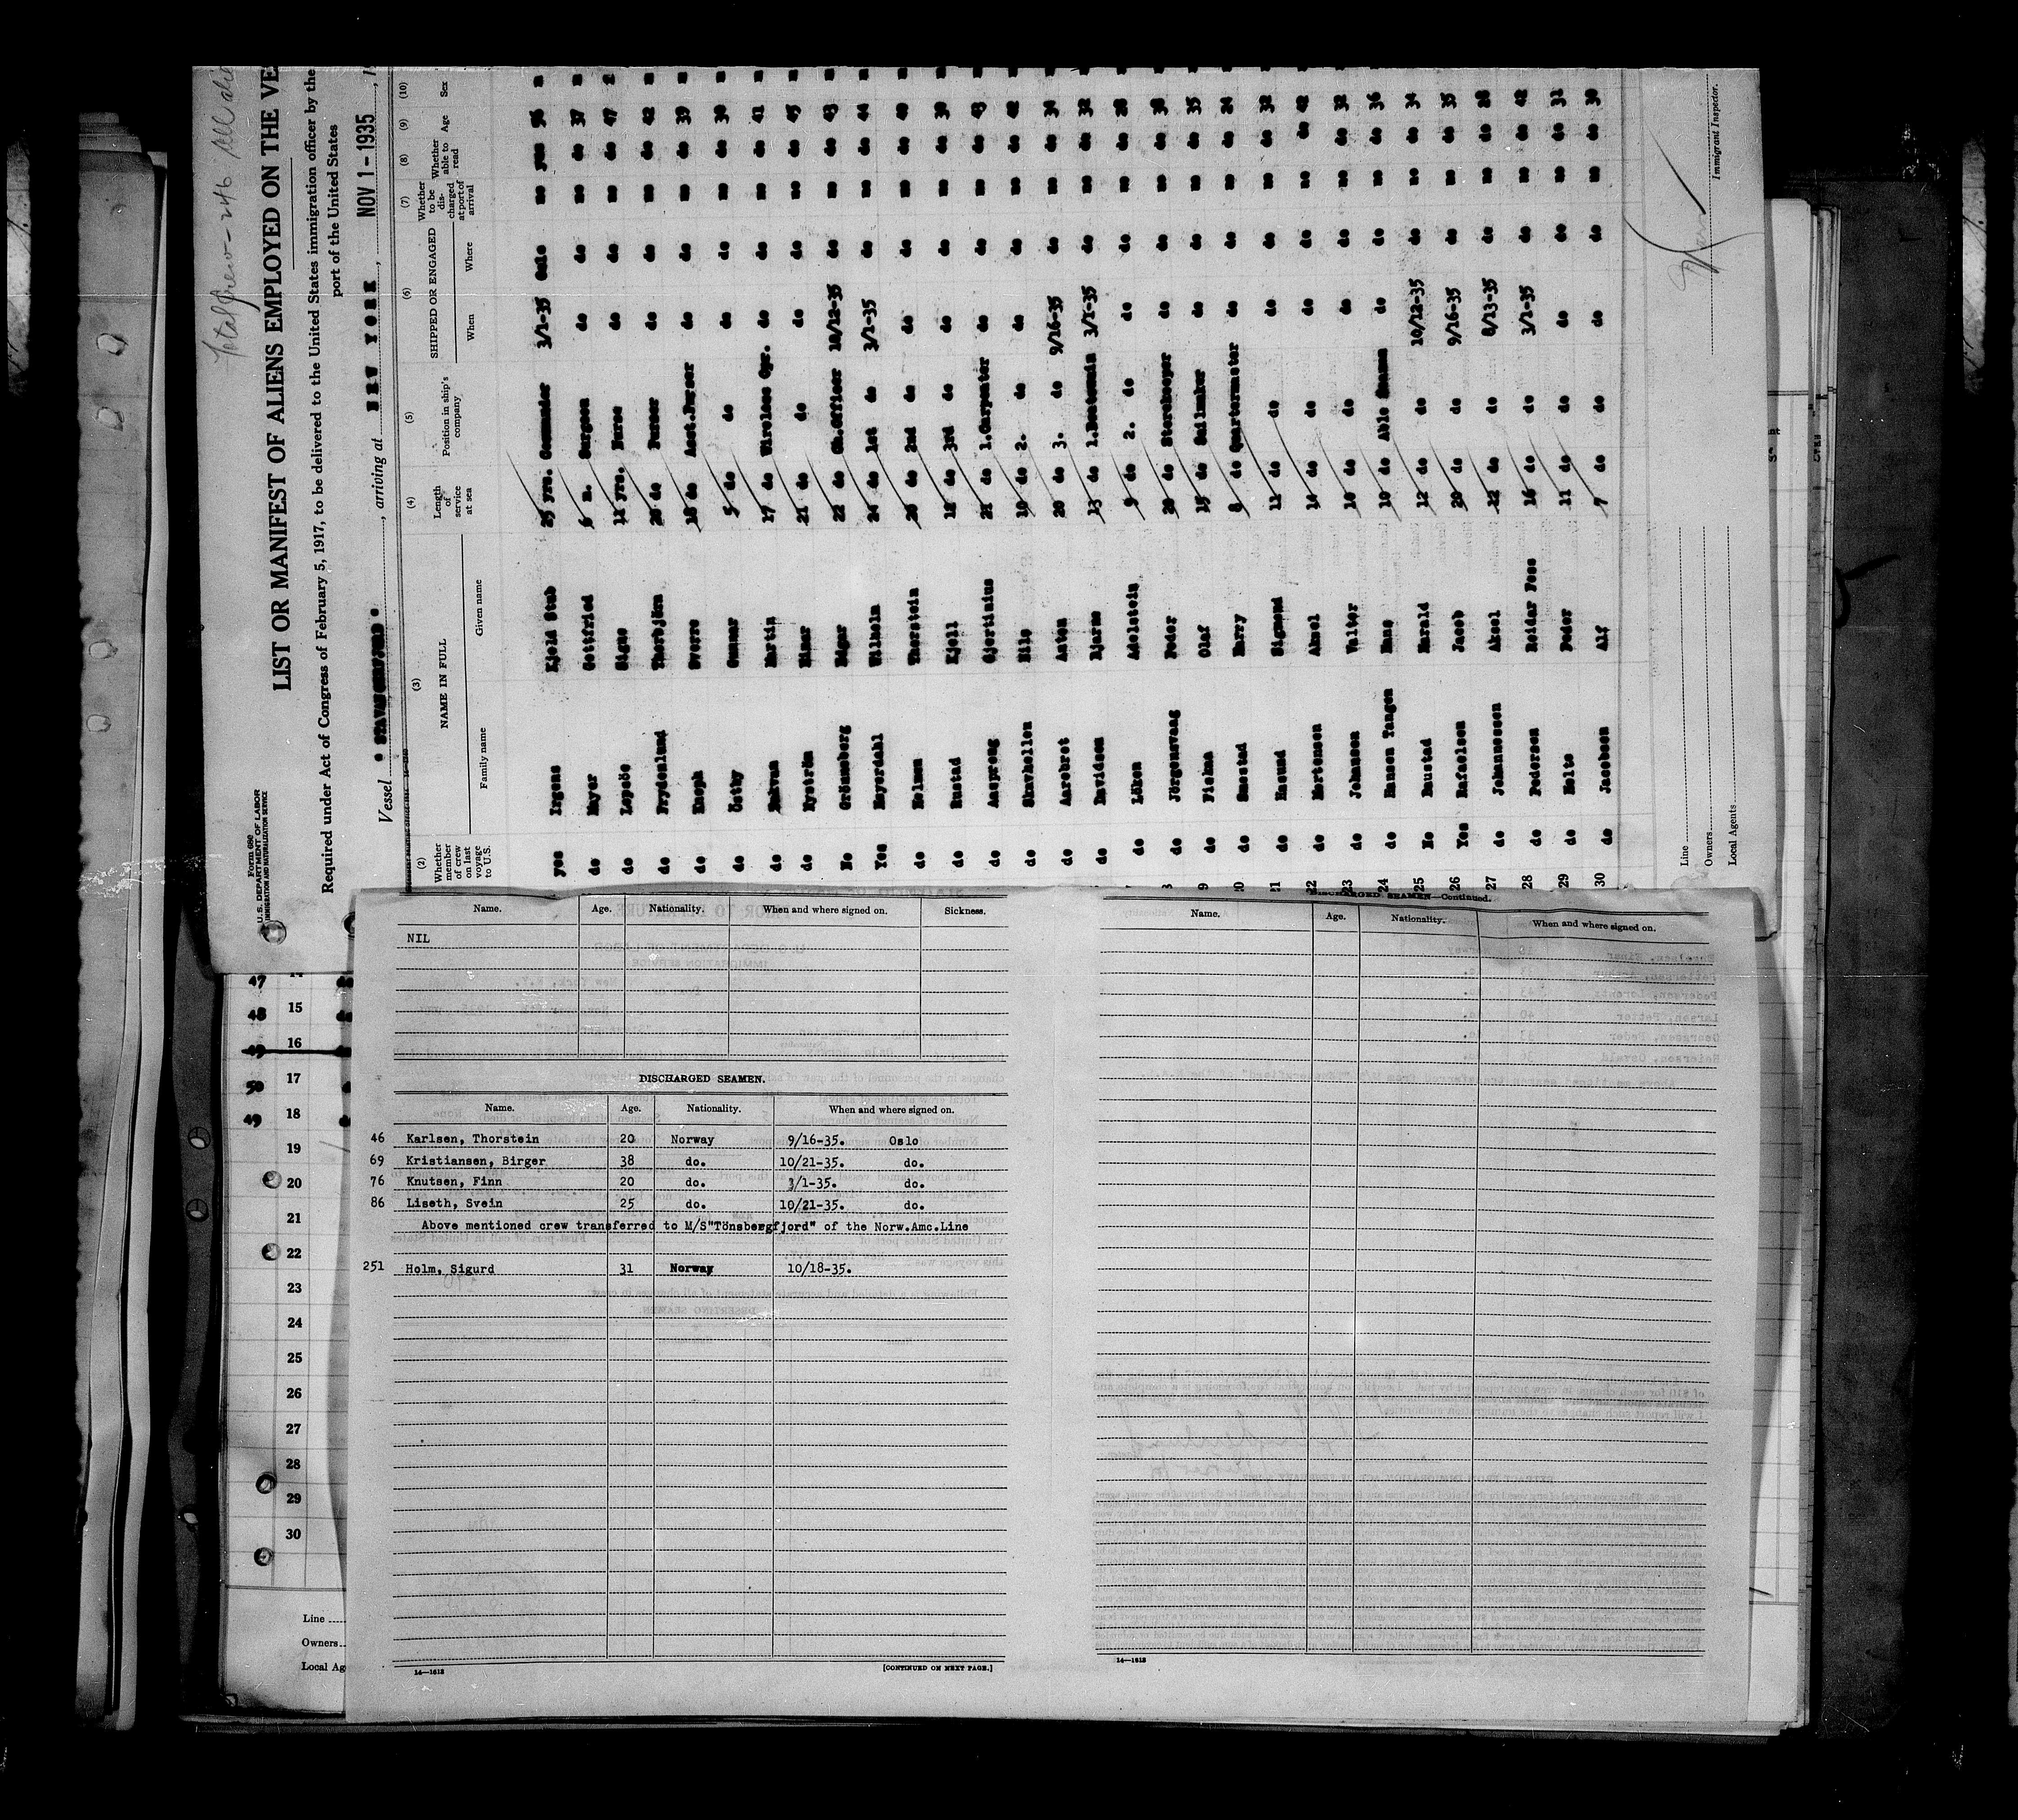 Total Crew - 246 All alie
Form 680
U. S. DEPARTMENT OF LABOR
IMMIGRATION AND NATURALIZATION SERVICE
LIST OR MANIFEST OF ALIENS EMPLOYED ON THE VE
Required under Act of Congress of February 5, 1917, to be delivered to the United States immigration officer by the
port of the United States
Vessel " STAVANGERFJORD ", arriving at NEW YORK, NOV 1 - 1935, 1
(2) (3) (4) (5) (6) (7) (8) (9) (10)
Whether member of crew on last voyage to U.S. NAME IN FULL Length of service at sea Position in ship's company SHIPPED OR ENGAGED Whether to be discharged at port of arrival Whether able to read Age Sex
Family name Given name When Where
yes Irgens Kjeld Stub 25 yrs. Commander 3/1-35 Oslo no yes 56 m
do Mayer Gottfried 6 m. Surgeon do do no do 37 m
do Lepsöe Signe 12 yrs. Nurse do do no do 47
do Frydenlund Thorbjörn 20 do Purser do do no do 42 m
do Knoph Sverre 18 do Asst.Purser do do no do 39 m
do Östby Gunnar 5 do do do do no do 30 m
do Martin 17 do Wireless Opr. do do no do 41 m
do Nyström Einar 21 do do do do no do 45 m
No Grönneberg Edgar 22 do Ch.Officer 10/12-35 do no do 43 m
Yes Heyerdahl Wilhelm 24 do 1st do 3/1-35 do no do 44 m
do Holmen Thorstein 26 do 2nd do do do no do 40 m
do Rustad Kjell 18 do 3rd do do do no do 39 m
do Aaspreng Gjertinius 21 do 1.Carpenter do do no do 43 m
do Skarhellen Nils 10 do 2. do do do no do 42 m
do Aarebrot Anton 20 do 3. do 9/16-35 do no do 34 m
do Davidsen Bjarne 13 do 1.Boatswain 3/1-35 do no do 32 m
do Löken Adelstein 9 do 2. do do do no do 28 m
8 do Jörgensvaag Peder 20 do Storekeeper do do no do 38 m
9 do Fiskna Olaf 15 do Sailmaker do do no do 35 m
20 do Smestad Harry 8 do Quartermaster do do no do 24 m
21 do Haasund Sigmund 11 do do do do no do 32 m
22 do Mortensen Aksel 14 do do do do no do 42 m
23 do Johansen Valter 10 do do do do no do 32 m
24 do Hansen Tangen Hans 19 do Able Seaman do do no do 36 m
25 No Raustad Harald 12 do do 10/12-35 do no do 34 m
26 Yes Rafaelsen Jacob 20 do do 9/16-35 do no do 35 m
27 do Johannessen Aksel 12 do do 8/13-35 do no do 28 m
28 do Pedersen Reidar Foss 16 do do 3/1-35 do no do 42 m
29 do Holte Peder 11 do do do do no do 31 m
30 do Jacobsen Alf 7 do do do do no do 30 m
Line
Owners
Local Agents
Immigrant Inspector.
Name. Age. Nationality. When and where signed on. Sickness.
NIL
DISCHARGED SEAMEN.
Name. Age. Nationality. When and where signed on.
46 Karlsen, Thorstein 20 Norway 9/16-35. Oslo
69 Kristiansen, Birger 38 do. 10/21-35. do.
76 Knutsen, Finn 20 do. 3/1-35. do.
86 Liseth, Svein 25 do. 10/21-35. do.
Above mentioned crew transferred to M/S"Tönsbergfjord" of the Norw.Amc.Line
251 Holm, Sigurd 31 Norway 10/18-35.
14—1613
[CONTINUED ON NEXT PAGE.]
DISCHARGED SEAMEN—Continued.
Name. Age. Nationality. When and where signed on.
14—1613
47 14 do
48 15 do
49 16
50 17
49 18
19
20
21
22
23
24
25
26
27
28
29
30
Line
Owners
Local Ag